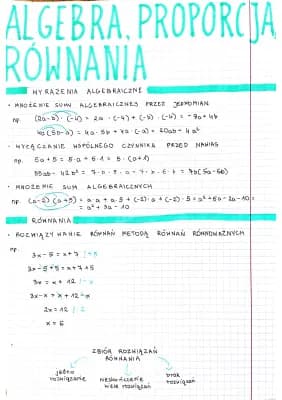 ALGEBRA, PROPORCJA,
RÓWNANIA
WYRAŻENIA ALGEBRAICZNE
• MNOŻENIE SUM ALGEBRAICZNYCH PRZEZ JEDNOMIAN
np.
4a(5b-a) = 4a·5b + 4a·(-a) = 20ab - 4a²
• WYŁĄCZANIE WSPÓLNEGO CZYNNIKA PRZED NAWIAS
np. 5a + 5 = 5·a + 5·1 = 5·(a+1)
• MNOŻENIE SUM ALGEBRAICZNYCH
np. (a-2)(a+5) = a·a + a·5 + (-2)·a + (-2)·5 = a² + 5a - 2a - 10 =
= a² + 3a - 10
RÓWNANIA
• ROZWIĄZYWANIE RÓWNAŃ METODĄ RÓWNAŃ RÓWNOWAŻNYCH
np.
3x - 5 = x + 7 /+5
3x - 5 + 5 = x + 7 + 5
3x = x + 12 /-x
3x - x = x + 12 - x
2x = 12 /:2
x = 6
ZBIÓR ROZWIĄZAŃ
RÓWNANIA
jedno rozwiązanie
nieskończenie wiele rozwiązań
brak rozwiązań